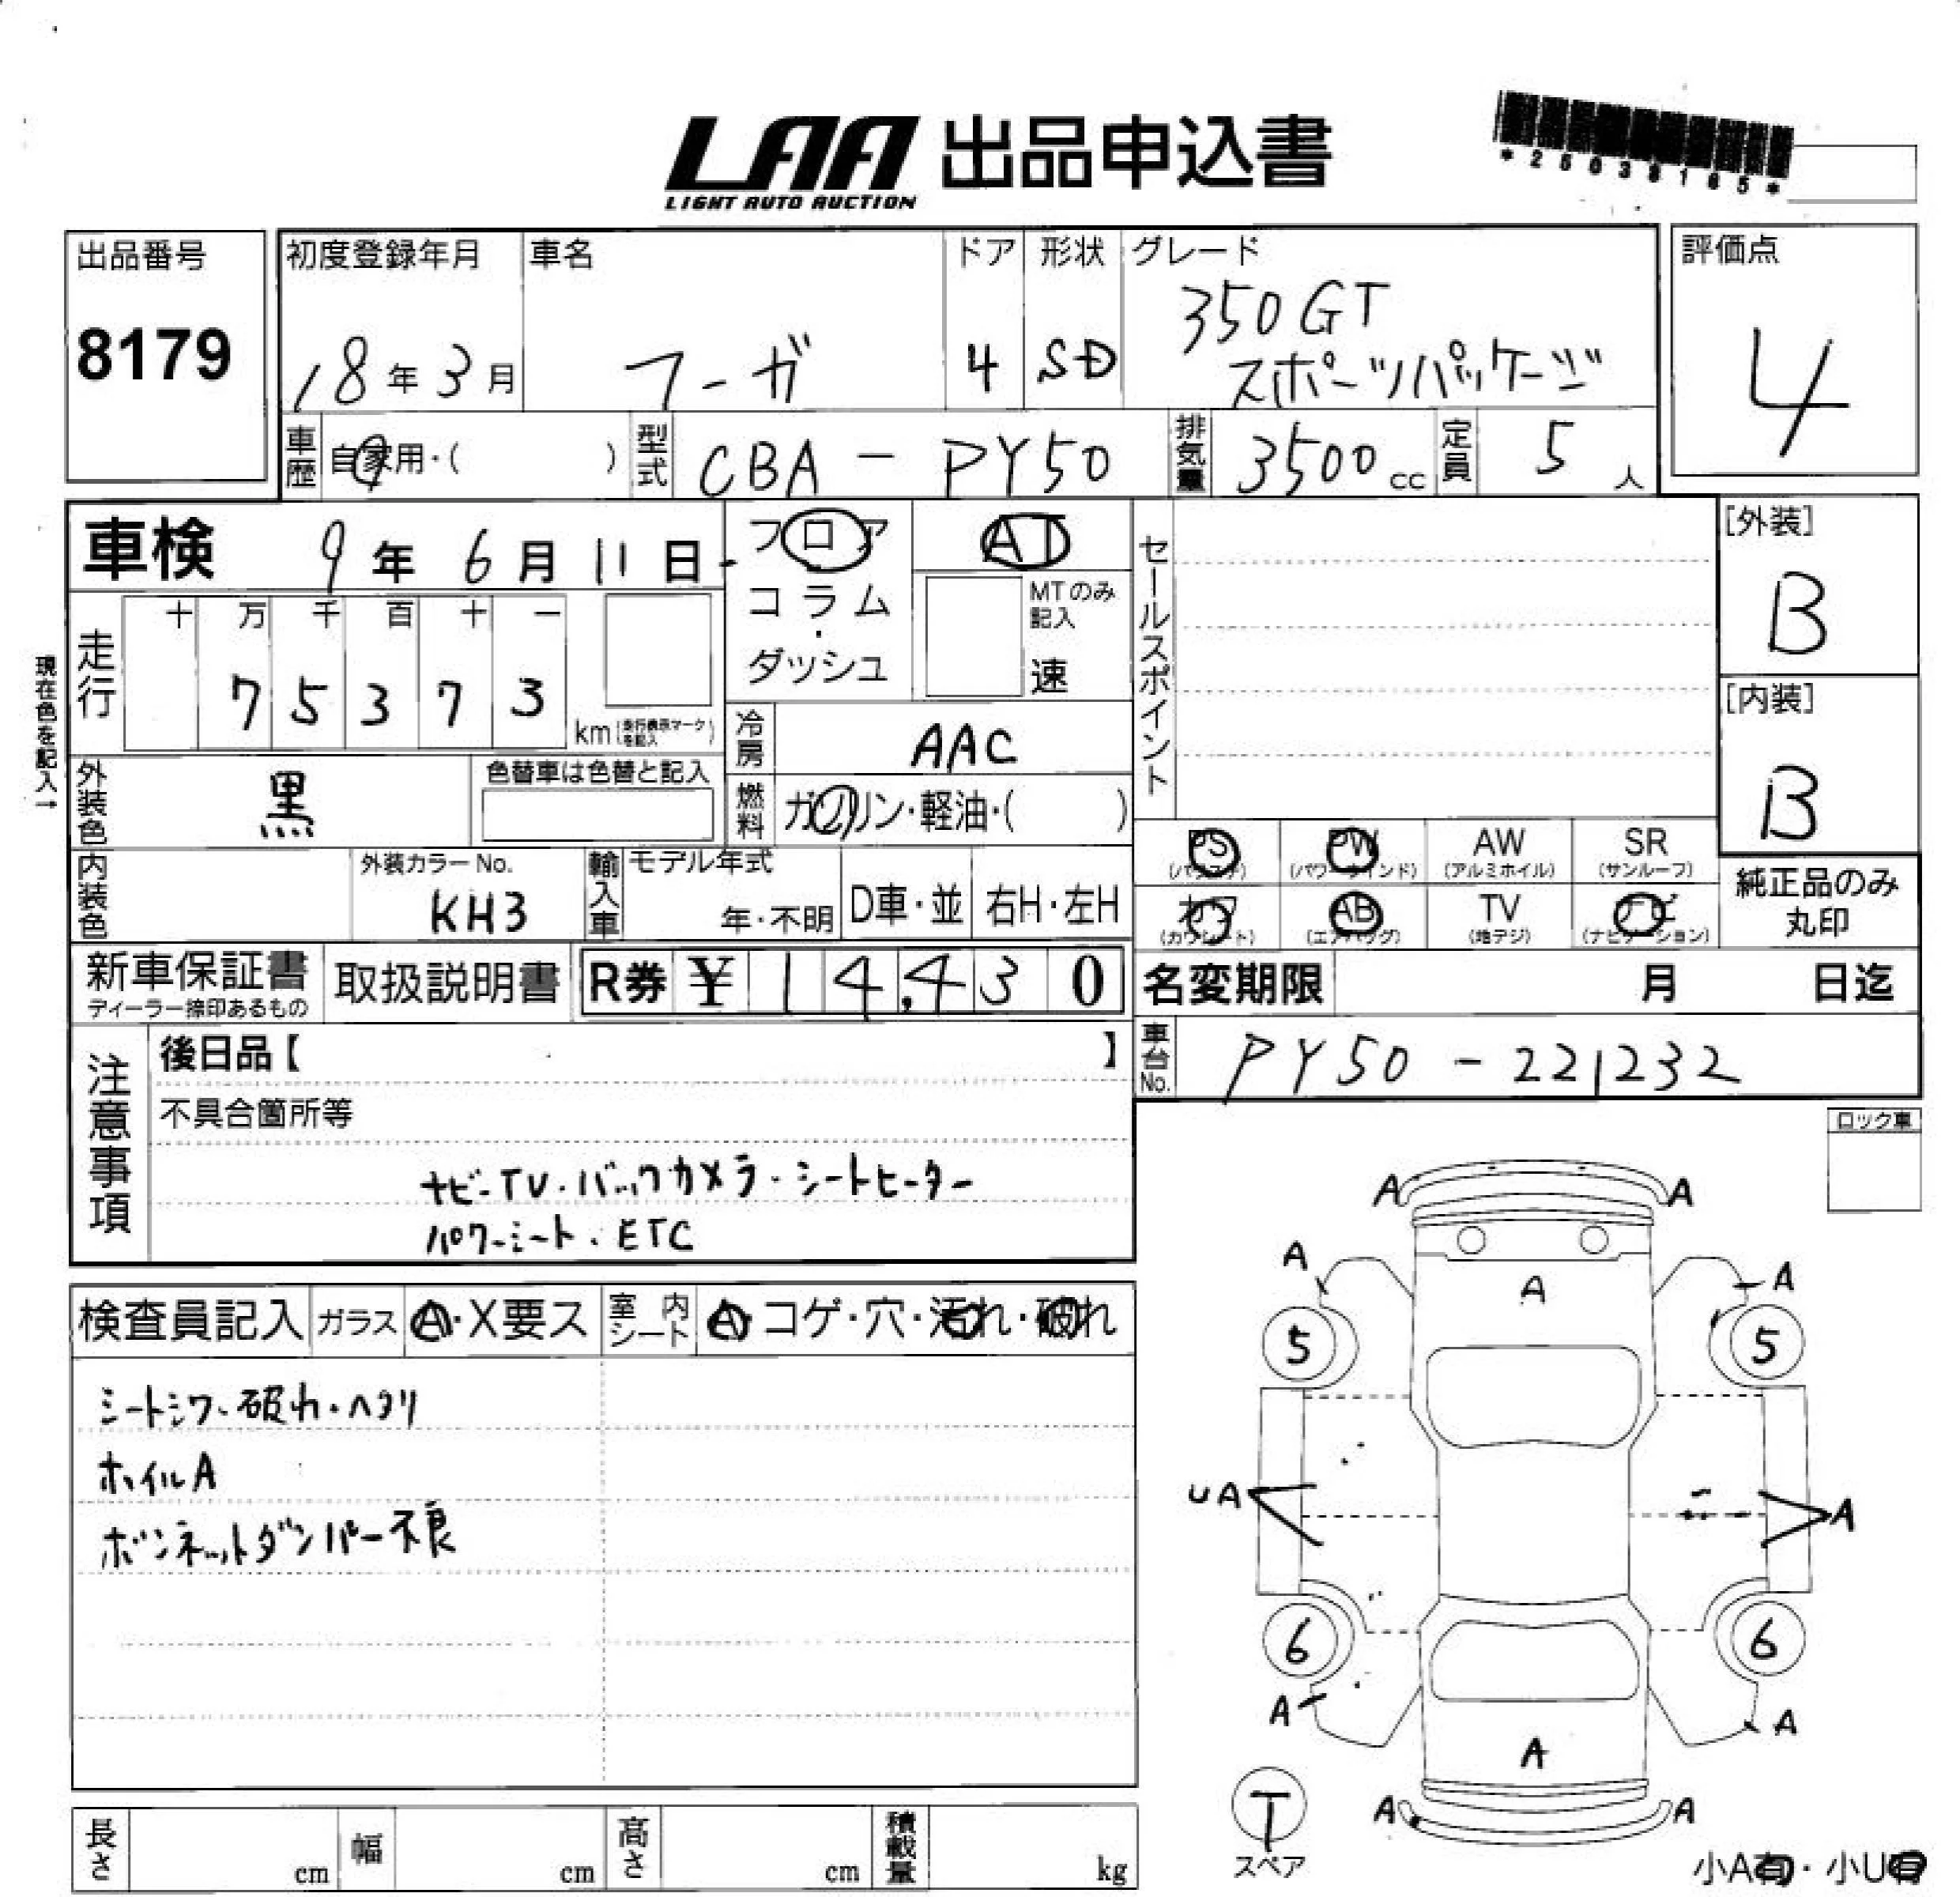 LAA 出品申込書
LIGHT AUTO AUCTION
*25038165*
出品番号
8179
初度登録年月
18年3月
車名
フーガ
ドア
4
形状
SD
グレード
350GT
スポーツパッケージ
評価点
4
車歴 自家用・( )
型式 CBA - PY50
排気量 3500cc
定員 5人
車検 9年6月11日
フロア
コラム
・
ダッシュ
AT
MTのみ
記入
速
セールスポイント
[外装]
B
[内装]
B
現在色を記入→
走行
十 万 千 百 十 一
7 5 3 7 3
km (走行表示マークを記入)
冷房 AAC
外装色 黒
色替車は色替と記入
燃料 ガソリン・軽油・( )
内装色
外装カラーNo.
KH3
輸入車
モデル年式
年・不明
D車・並
右H・左H
PS (パワステ)
PW (パワーウインド)
AW (アルミホイル)
SR (サンルーフ)
カワ (カワシート)
AB (エアバッグ)
TV (地デジ)
ナビ (ナビゲーション)
純正品のみ
丸印
新車保証書
ディーラー捺印あるもの
取扱説明書
R券 ¥14,430
名変期限 月 日迄
注意事項
後日品【 】
車台No. PY50-221232
不具合箇所等
ナビ-TV・バックカメラ・シートヒーター
パワーシート・ETC
ロック車
検査員記入
ガラス A・X要ス
室内シート A・コゲ・穴・汚れ・破れ
シートシワ・破れ・ヘタリ
ホイルA
ボンネットダンパー不良
A A
A A A
5 5
UA A
6 6
A A
A
A A
T
スペア
小A有・小U有
長さ cm
幅 cm
高さ cm
積載量 kg